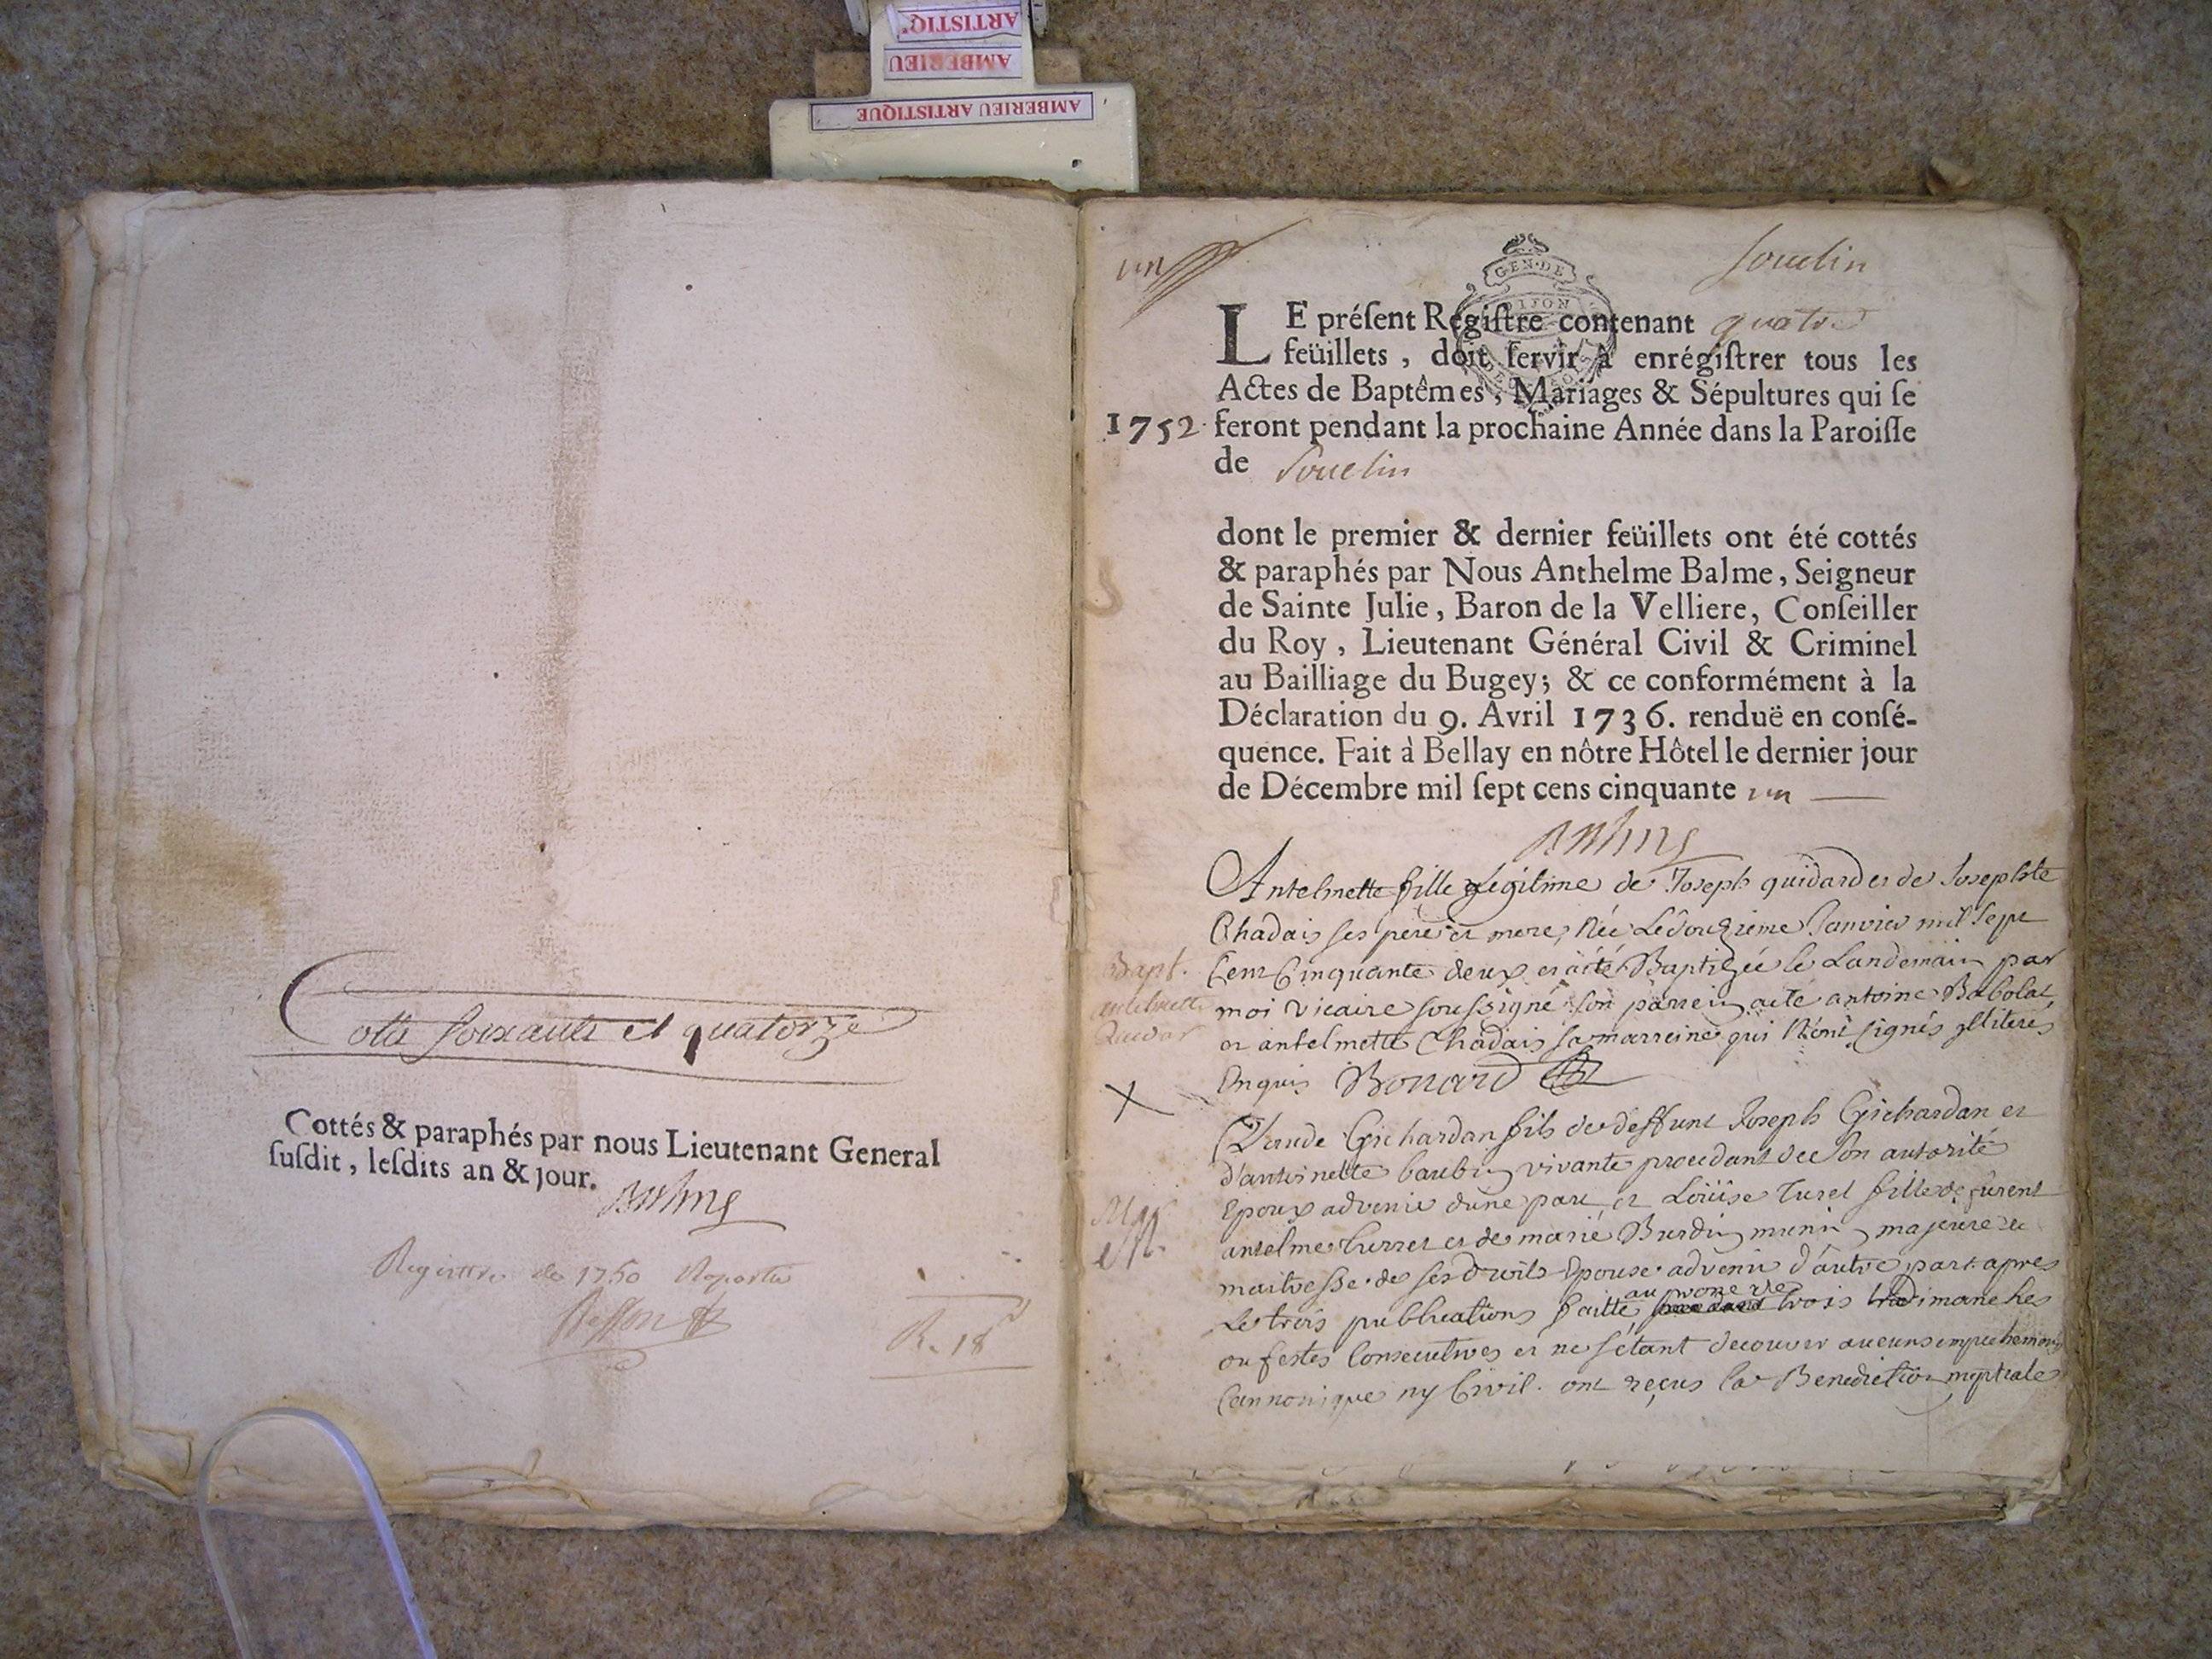 ARTISTIQ
AMBERIEU
AMBERIEU ARTISTIQUE
Cotté soixante et quatorze
Cottés & paraphés par nous Lieutenant General
ſuſdit, leſdits an & jour.
Registre de 1750
R. 18
un
Souclin
GEN·DE
DIJON
LE préſent Regiſtre contenant quatre
feüillets, doit ſervir à enrégiſtrer tous les
Actes de Baptêmes, Mariages & Sépultures qui ſe
1752. feront pendant la prochaine Année dans la Paroiſſe
de Souclin
dont le premier & dernier feüillets ont été cottés
& paraphés par Nous Anthelme Balme, Seigneur
de Sainte Julie, Baron de la Velliere, Conſeiller
du Roy, Lieutenant Général Civil & Criminel
au Bailliage du Bugey; & ce conformément à la
Déclaration du 9. Avril 1736. renduë en conſé-
quence. Fait à Bellay en nôtre Hôtel le dernier jour
de Décembre mil ſept cens cinquante un
Antelmette fille Légitime de Joseph quidard et de Josephte
Chadais ses pere et mere, Née Le douzieme Janvier mil sept
Bapt.
Cent Cinquante deux et a été Baptizée le Landemain par
antelmette
moi vicaire soussigné son parrein a été antoine Babolat
et antelmette Chadais sa marreine qui N'ont signés
Enquis Bonard
Claude Grichardan fils de deffunt Joseph Grichardan et
d'antoinette barbin vivante procedant de son autorité
Epoux advenir d'une part, et Loüise Turel fille de furent
Mar
antelme turrel et de marie Burdin majeure et
maitresse de ses droits Epouse advenir d'autre part apres
Les trois publications faitte au prone de trois dimanches
ou festes Consecutives et ne s'étant decouver aucuns empechemens
Cannonique ny Civil. ont reçus la Benediction nuptiale